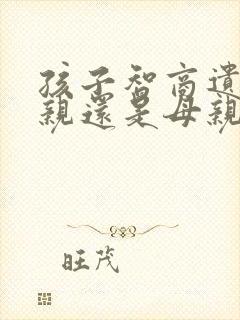 孩子智商遺
親還是母親
旺茂